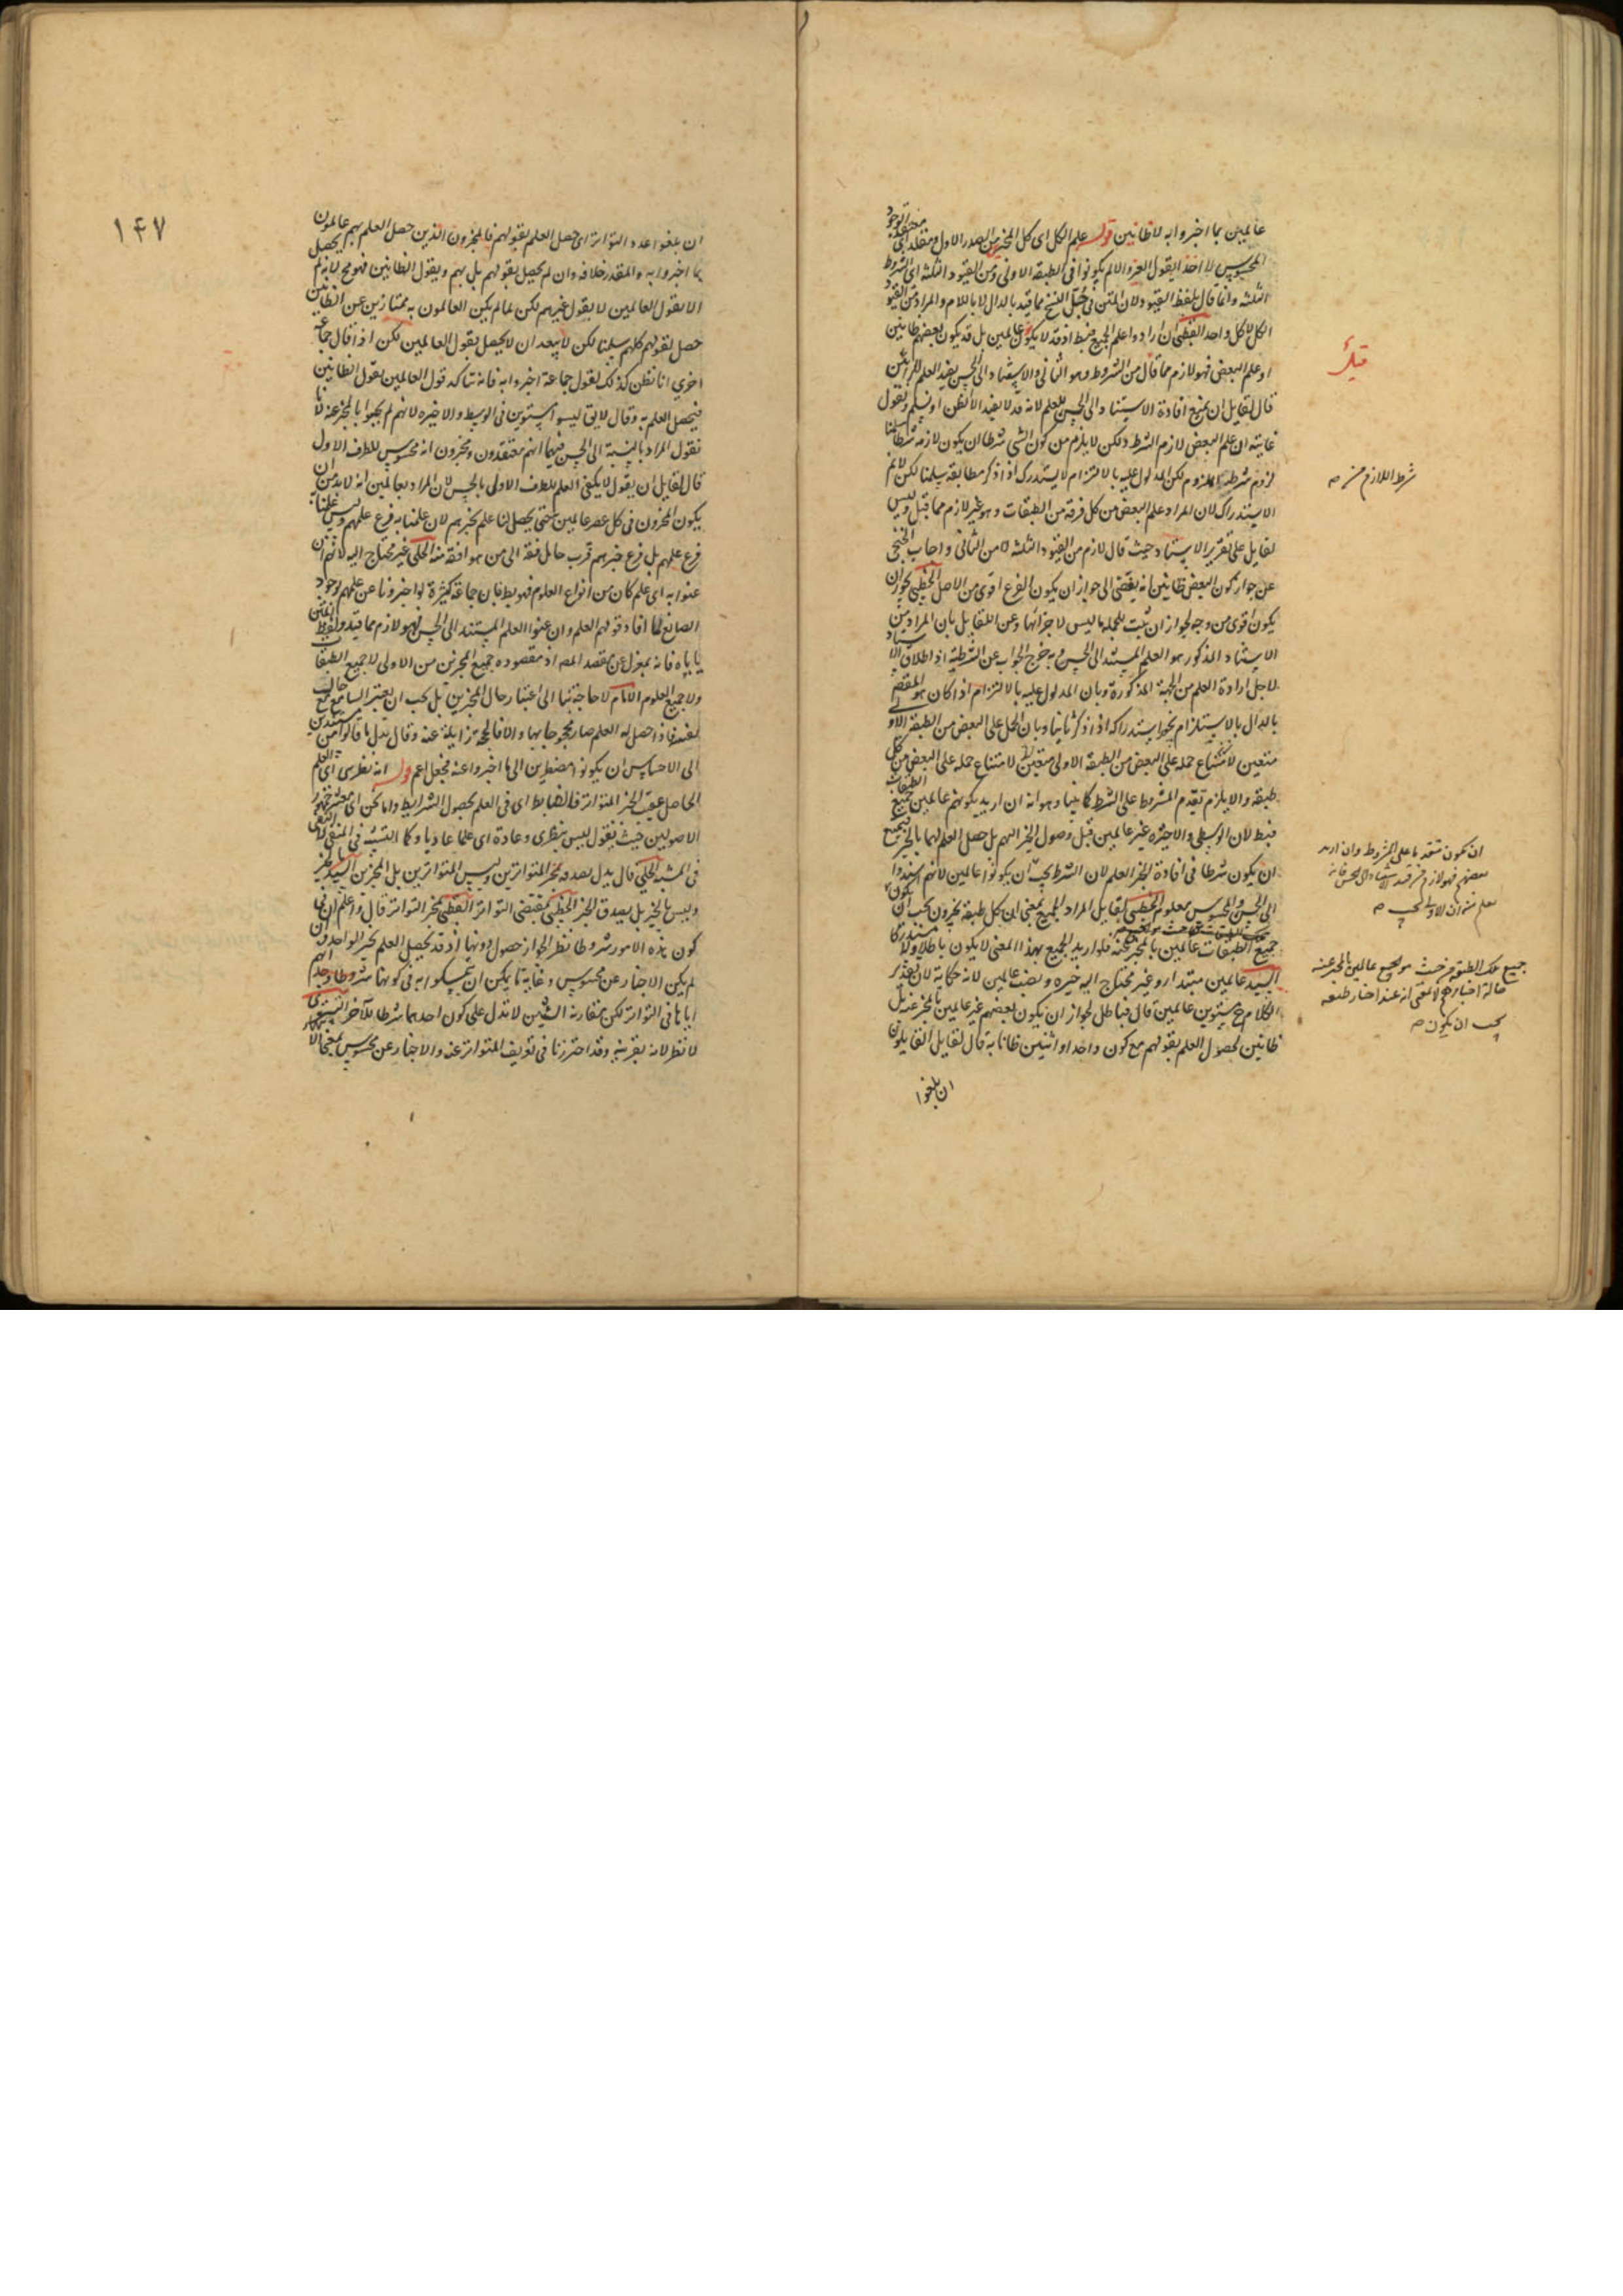 عالمين بما اخبروا به لا ظانين قوله علم الكل اى كل المخبرين الصدر الاول
المحسوس لا اخذ القول الغير والا لم يكونوا فى الطبقة الاولى ومن القيود الثلثة اى الشروط
الثلثة وانما قال بلفظ القيود ولان المتن فى جل النسخ مما قيد بالدال لا باللام والمراد من القيود
الكل لا كل واحد القطبى ان ارادوا علم الجميع فبط اذ قد لا يكون عالمين بل قد يكون بعضهم ظانين
او علم البعض فهو لازم مما قال من الشروط وهو الثانى والاستناد الى الحس يفيد العلم
قال لقايل ان يمنع افادة الاستناد الى الحس للعلم لانه قد لا يفيد الا الظن او نسلم ونقول
غايته ان علم البعض لازم الشرط ولكن لا يلزم من كون الشى شرطا ان يكون لازمه شرطا سلمنا
لزوم شرطية الملزوم لكن المدلول عليه بالالتزام لا يستدرك اذا ذكر مطابقة سلمنا لكن لا نم
الاستدراك لان المراد علم البعض من كل فرقة من الطبقات وهو غير لازم مما قبل وليس
لقايل على تقرير الاستناد حيث قال لازم من القيود الثلثة لا من الثانى واجاب الخنجى
عن جواز كون البعض ظانين انه يفضى الى جواز ان يكون الفرع اقوى من الاصل الخطيبى يجوز ان
يكون اقوى من وجه لجواز ان يثبت للجملة ما ليس لاجزائها وعن القايل بان المراد من
الاستناد المذكور هو العلم المستند الى الحس وبه خرج الجواب عن الشرطية اذ اطلاق الاستناد
لاجل ارادة العلم من الجهة المذكورة وبان المدلول عليه بالالتزام اذا كان هو المقصد
بالدال بالاستلزام يجوز استدراكه اذا ذكر ثانيا وبان الحمل على البعض من الطبقة الاولى
متعين لامتناع حمله على البعض من الطبقة الاولى متعين لامتناع حمله على البعض من كل
طبقة والا يلزم تقدم المشروط على الشرط كما بينا وهو انه ان اريد بكونهم عالمين جميع الطبقات
فبط لان الوسطى والاخيرة غير عالمين قبل وصول الخبر اليهم بل حصل العلم لهما بالخبر فيمتنع
ان يكون شرطا فى افادة الخبر العلم لان الشرط يجب ان يكونوا عالمين لانهم اسندوا
الى الحس والمحسوس معلوم الخطيبى لقايل المراد الجميع بمعنى ان كل طبقة يخبرون يجب ان يكون
جميع الطبقات عالمين بالمخبر عنه فلو اريد الجميع بهذا المعنى لا يكون باطلا ولا مستدركا
السيد عالمين مبتدا وغير محتاج اليه خبره ونصب عالمين لانه حكاية لان تقدير
الكلام مستوين عالمين قال فباطل لجواز ان يكون بعضهم غير عالمين بالمخبر عنه بل
ظانين لحصول العلم بقولهم مع كون واحد او اثنين ظانا به قال لقايل القايلون
ان بلغوا
شرط اللازم
ان يكون متقدما على المشروط وان اريد
بعضهم فهو لازم من قيد الاستناد الى الحس فانه
جميع تلك الطبقة من حيث هو الجميع عالمين بالمخبر عنه
حالة اخبارهم لا بمعنى انه عند اخبار طبقة
يجب ان يكون
١٤٧
ان بلغوا عدد التواتر اى حصل العلم بقولهم فالمخبرون الذين حصل العلم بهم عالمون
بما اخبروا به والمقدر خلافه وان لم يحصل بقولهم بل بهم وبقول الظانين فهو مح لانه لم يحصل
الا بقول العالمين لا بقول غيرهم لكن لما لم يكن العالمون به ممتازين عن الظانين
حصل بقولهم كلهم سلمنا لكن لا يبعد ان لا يحصل بقول العالمين لكن اذا قال جماعة
اخرى انا نظن كذلك لقول جماعة اخبروا به فانه يتاكد قول العالمين بقول الظانين
فيحصل العلم به وقال لا يق ليسوا مستوين فى الوسط والاخيرة لانهم لم يحسوا بالمخبر عنه لانا
نقول المراد بالنسبة الى الحس فيهما انهم معتقدون ومخبرون انه محسوس للطرف الاول
قال لقايل ان يقول لا يكفى العلم للطرف الاولى بالحس لان المراد بعالمين انه لا بد من ان
يكون المخبرون فى كل عصر عالمين حتى يحصل لنا علم بخبرهم لان علمنا به فرع علمهم وليس علمنا
فرع علمهم بل فرع خبرهم فرب حامل فقه الى من هو افقه منه الحلى غير محتاج اليه لانهم ان
عنوا به اى علم كان من انواع العلوم فهو بط فان جماعة كثيرة لو اخبرونا عن علمهم بوجود
الصانع لما افاد قولهم العلم وان عنوا العلم المستند الى الحس فهو لازم مما قيد ولفظ المتن
ياباه فانه بمعزل عن مقصد المص اذ مقصوده جميع المخبرين من الاولى لا جميع الطبقات
ولا جميع العلوم الامام لا حاجة بنا الى اعتبار حال المخبرين بل يجب ان يعتبر السامع حال
نفسه فاذا حصل له العلم صار محجوجا بها والا فالحجة زايلة عنه وقال بدل ما قالوا من مستندين
الى الاحساس ان يكونوا مضطرين الى ما اخبروا عنه فجعل اعم قوله انه نظرى اى العلم
الحاصل عقيب الخبر المتواتر فالضابط اى فى العلم بحصول الشرايط واما نحن اى معشر جمهور
الاصوليين حيث نقول ليس بنظرى وعادة اى علما عاديا وكما التشبيه فى المنفى لا
فى المشبه الحلى قال بدل بصدقه بخبر المتواترين وليس المتواترين بل المخبرين السيد بالخبر
وليس بالخبر بل بصدق الخبر الخطيبى بمقتضى التواتر القطبى بخبر التواتر قال واعلم ان فى
كون هذه الامور شروطا نظر الجواز حصول دونها اذ قد يحصل العلم بخبر الواحد وان
لم يكن الاخبار عن محسوس وغاية ما يمكن ان يتمسكوا به فى كونها شروطا وجدانهم
اياها فى التواتر لكن مقارنة الشيئين لا تدل على كون احدهما شرطا للآخر التسترى
لا نظر لانه بقرينة وقد احترزنا فى تعريف المتواتر عنه والاخبار عن محسوس